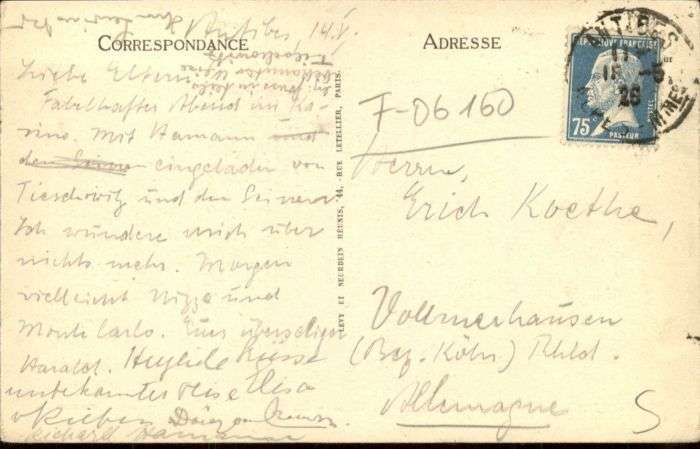 Antibes, 14.V.
CORRESPONDANCE
Liebe Eltern
Fabelhafter Abend im Ka-
sino. Mit Hamann und
den Seinen eingeladen von
Tieschowitz und den Seinen.
Ich wundere mich über
nichts mehr. Morgen
vielleicht Nizza und
Monte Carlo. Euer überseliger
Harald. Herzliche Grüsse
unbekannter Weise Elisa
Richard Hamann
LEVY ET NEURDEIN RÉUNIS, 44, RUE LETELLIER, PARIS.
ADRESSE
F-06160
ANTIBES
26
RÉPUBLIQUE FRANÇAISE
75
POSTES
PASTEUR
Herrn
Erich Koethe,
Vollmerhausen
(Bez. Köln) Rhld.
Allemagne
S